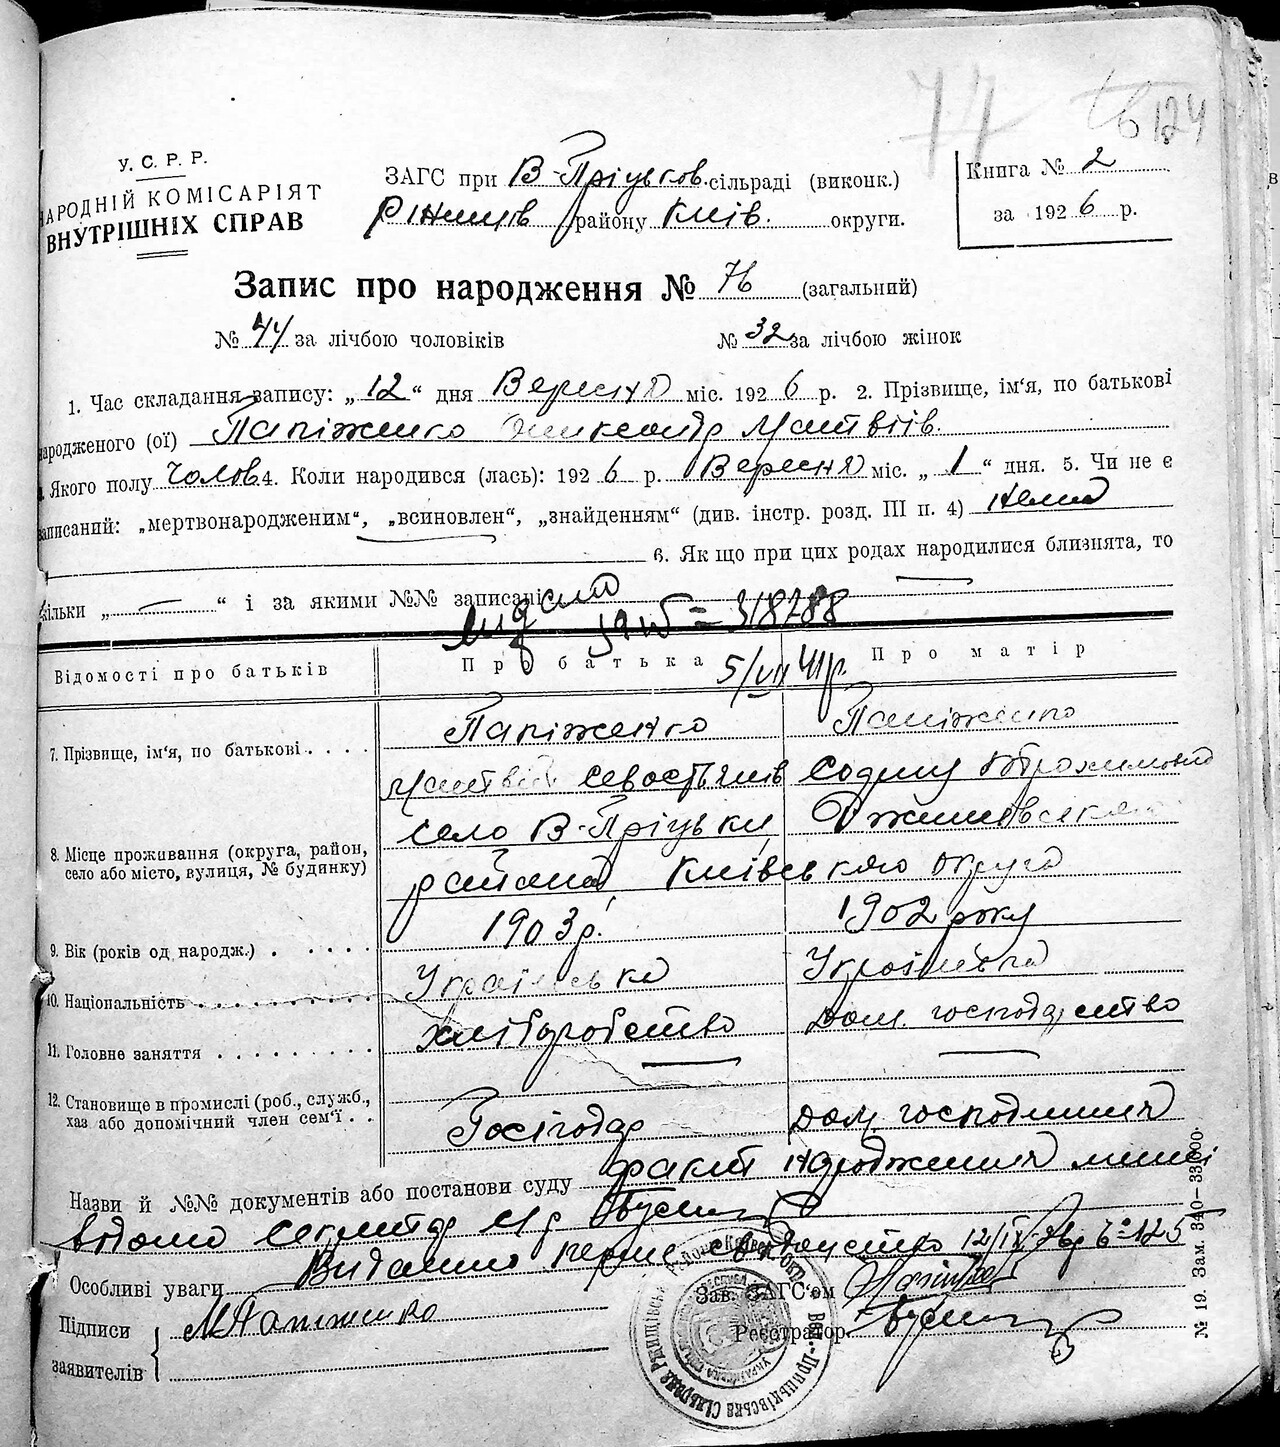 74 124
У. С. Р. Р.
НАРОДНІЙ КОМІСАРІЯТ
ВНУТРІШНІХ СПРАВ
ЗАГС при В-Пріцьков. сільраді (виконк.)
Ржищів району Київ. округи.
Книга № 2
за 1926 р.
Запис про народження № 76 (загальний)
№ 44 за лічбою чоловіків № 32 за лічбою жінок
1. Час складання запису: „12“ дня Вересня міс. 1926 р. 2. Прізвище, ім'я, по батькові
народженого (ої) Папіженко Олександр Матвіїв.
Якого полу Чолов. 4. Коли народився (лась): 1926 р. Вересня міс. „1“ дня. 5. Чи не є
записаний: „мертвонародженим“, „всиновлен“, „знайденням“ (див. інстр. розд. III п. 4) Немає
6. Як що при цих родах народилися близнята, то
скільки „ — “ і за якими №№ записані
= 318288
5/VII 41р.
Відомості про батьків Про батька Про матір
7. Прізвище, ім'я, по батькові . . . . Папіженко Папіженко
Матвій Севостьянів
8. Місце проживання (округа, район, село або місто, вулиця, № будинку) село В-Пріцьки
района, Київського округа
9. Вік (років од народж.) . . . . . 1903р. 1902 року
10. Національність Українська Українка
11. Головне заняття . . . . . . . . . хліборобство Дом. господарство
12. Становище в промислі (роб., служб., хаз або допомічний член сем'ї . . Господар Дом. господиня
Назви й №№ документів або постанови суду факт народження мині
відомо Секретар С/р
Особливі уваги Видано перше свідоцтво 12/IX-26р № 125
Підписи заявителів { МПапіженко
Зав. ЗАГС'ом
Реєстратор
№ 19. Зам. 340—33.000.